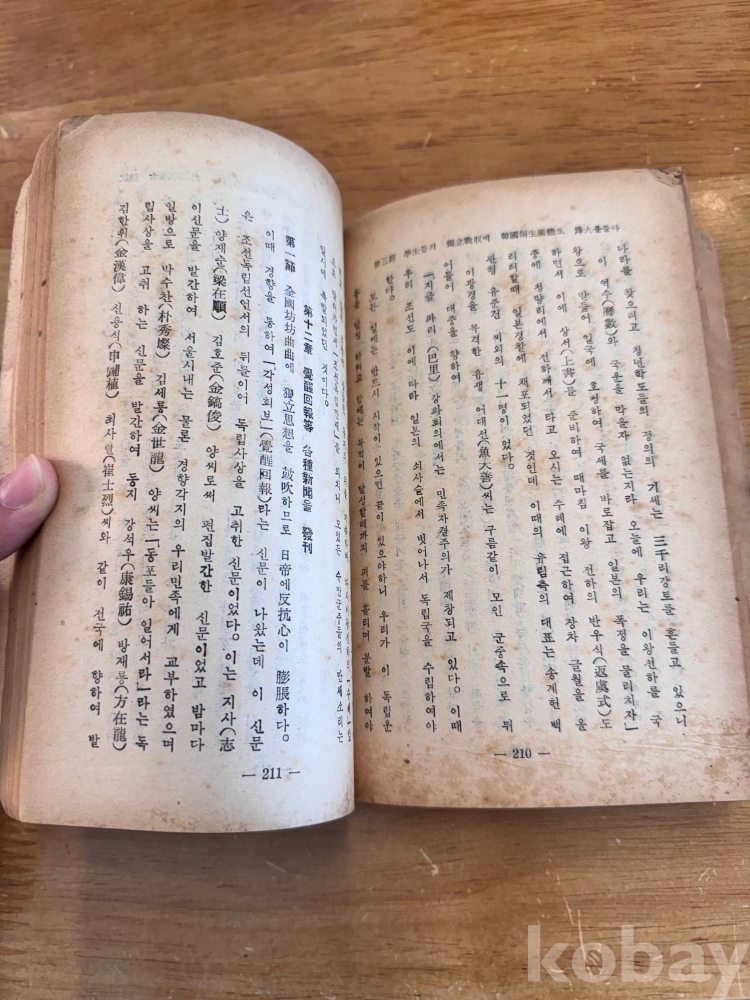 第三節 學生들의 獨立戰取에 韓國儒生團體도 烽火를들다
나라를 찾으려고 청년학도들의 정의의 기세는 三千리강토를 흔들고 있으니
이 역수(曆數)와 국운을 막을자 없는지라 오늘에 우리는 이왕전하를 국
왕으로 받들어 일국에 호령하여 국세를 바로잡고 일본의 폭정을 물리치자」
하면서 이에 상서(上書)를 준비하여 때마침 이왕 전하의 반우식(返虞式)도
중에 청량리에서 전하께서 타고 오시는 수레에 접근하여 장차 글월을 올
리려할때 일본경찰에 체포되었던 것인데 이때의 유림측의 대표는 송계헌 백
관형 유준전 씨회의 十一명이 있었다。
이광경을 목격한 유생 어대선(魚大善)씨는 구름같이 모인 군중속으로 뛰
어들어 대중을 향하여
「지금 파리(巴里) 강화회의에서는 민족자결주의가 제창되고 있다。이때
우리 조선도 이에 따라 일본의 쇠사슬에서 벗어나서 독립국을 수립하여야
한다。
모든 일에는 반드시 시작이 있으면 끝이 있어야하니 우리가 이 독립운
동을 일으켜 하려고 함에는 목적이 달성할때까지 피를 흘리며 분발 하여야
— 210 —
수만군중들의 만세소리는
있게 폭발되었던 것이다。
第十二章 覺醒回報等 各種新聞을 發刊
第一節 全國坊坊曲曲에 獨立思想을 鼓吹하므로 日帝에反抗心이 膨脹하다。
이때 경향을 통하여「각성회보」(覺醒回報)라는 신문이 나왔는데 이 신문
은 조선독립선언서의 뒤를이어 독립사상을 고취한 신문이었다。이는 지사(志
士) 양재순(梁在順) 김호준(金鎬俊) 양씨로써 편집발간한 신문이었고 밤마다
이신문을 발간하여 서울시내는 물론 경향각지의 우리민족에게 교부하였으며
일방으로 박수찬(朴秀燦) 김세룡(金世龍) 양씨는「동포들아 일어서라」라는 독
립사상을 고취 하는 신문을 발간하여 동지 강석우(康錫祐) 방재룡(方在龍)
김한위(金漢偉) 신용식(申鏞植) 최사렬(崔士烈)씨와 같이 전국에 향하여 발
— 211 —
kobay